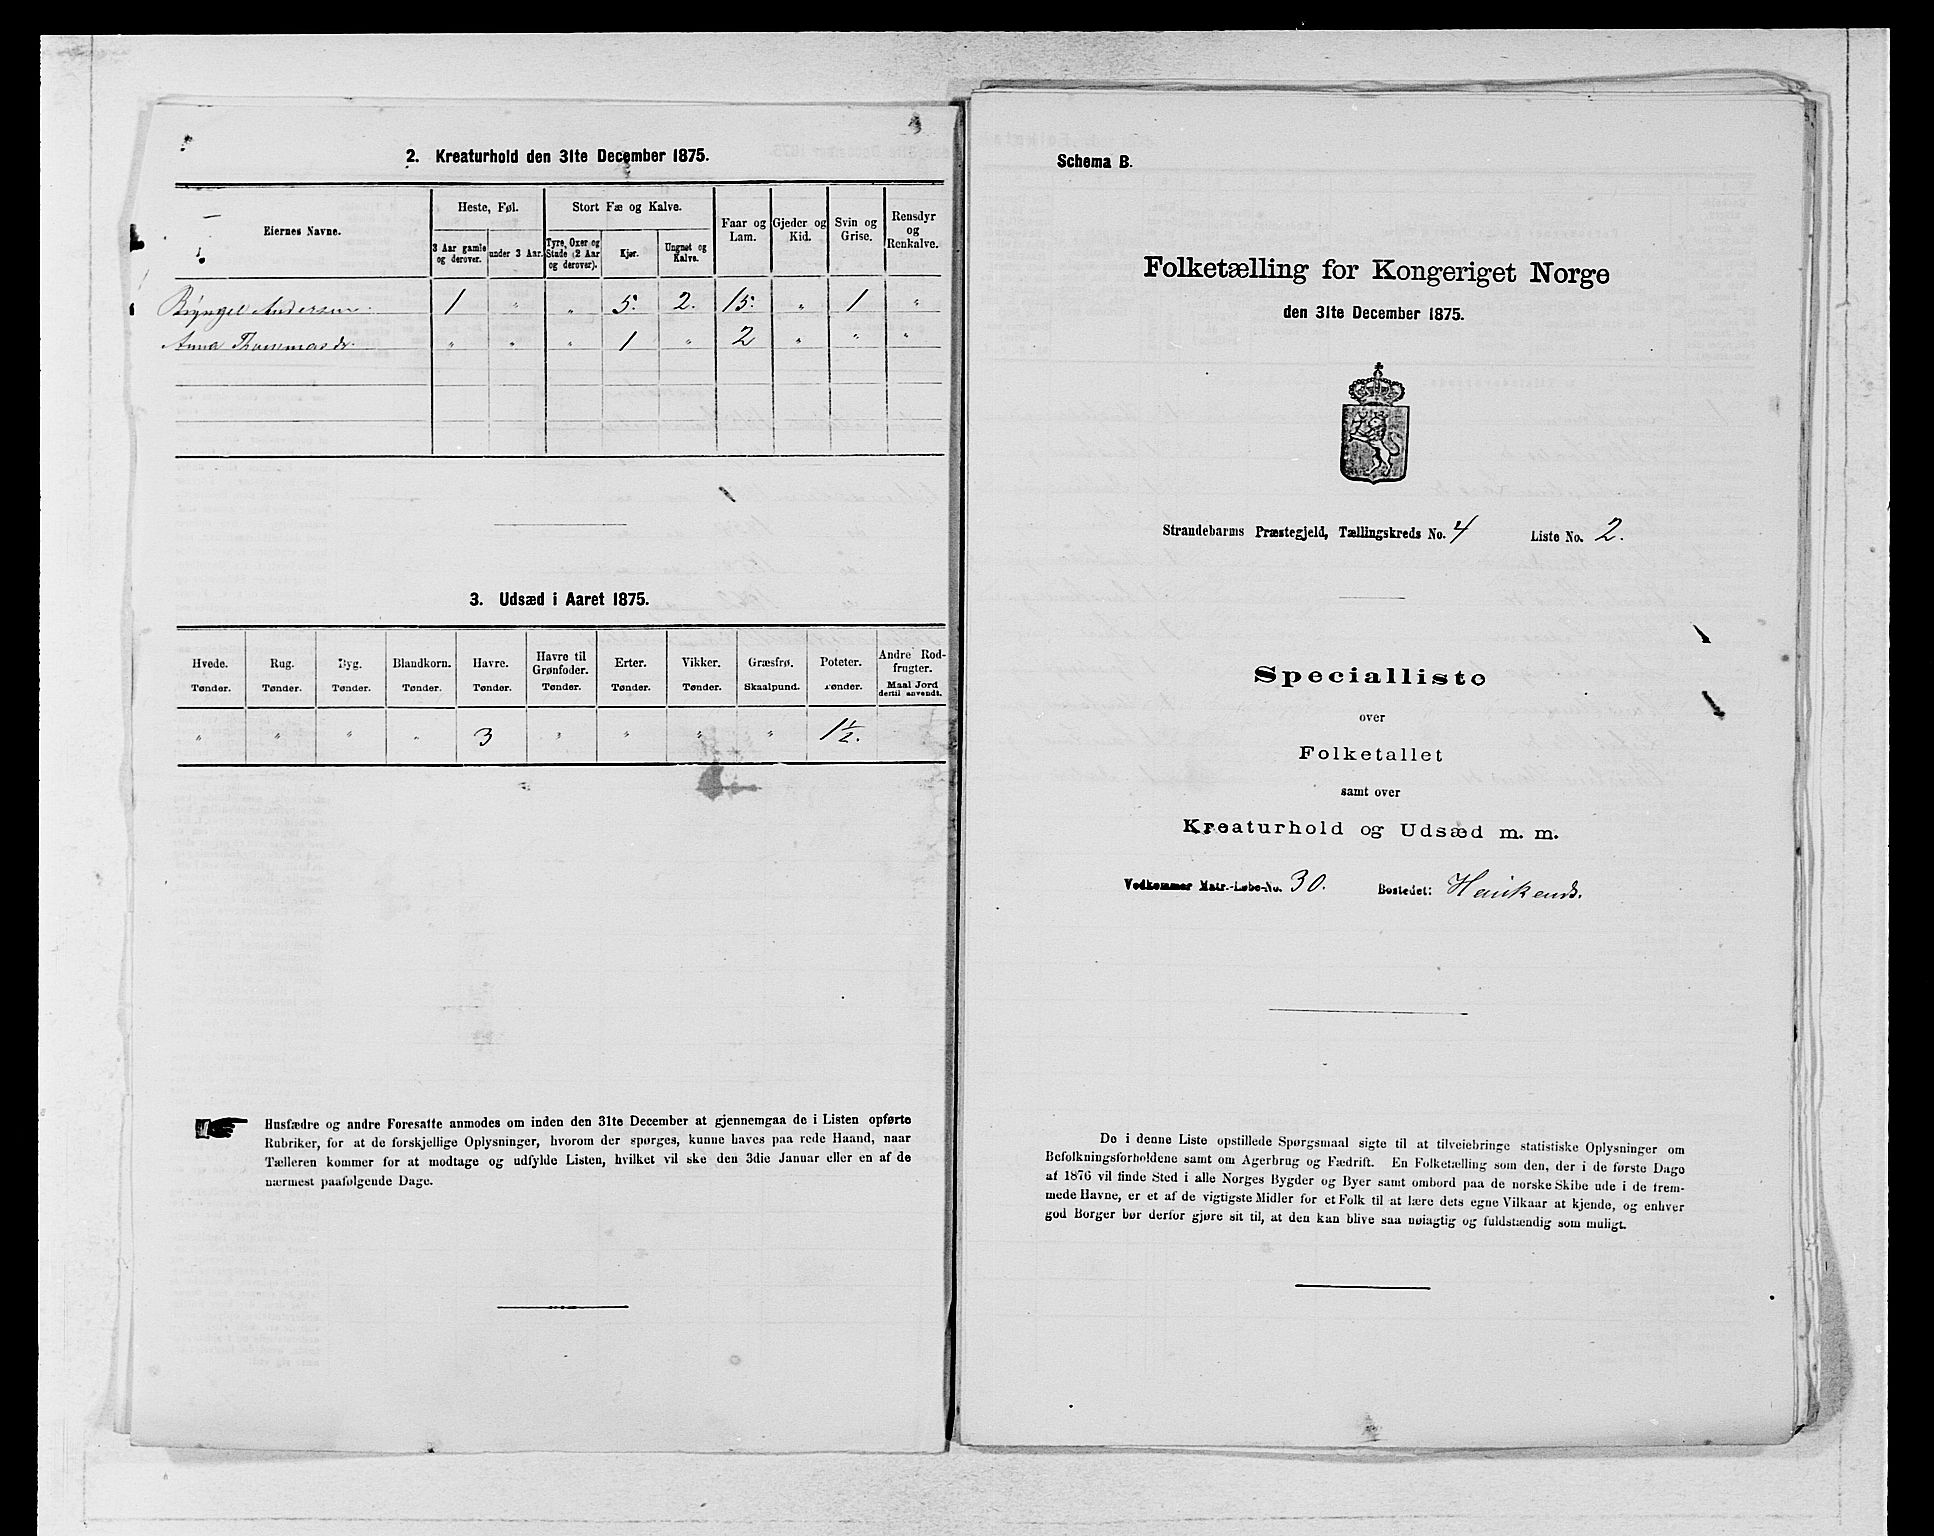 2. Kreaturhold den 31te December 1875.
Eiernes Navne.
Heste, Føl.
Stort Fæ og Kalve.
Faar og Lam.
Gjeder og Kid.
Svin og Grise.
Rensdyr og Renkalve.
3 Aar gamle og derover.
under 3 Aar.
Tyre, Oxer og Stude (2 Aar og derover).
Kjør.
Ungnøt og Kalve.
Bryngel Andersen. 1 " " 5. 2. 15. " 1 "
Anna Thommasdr. " " " 1 " 2 " " "
3. Udsæd i Aaret 1875.
Hvede. Rug. Byg. Blandkorn. Havre. Havre til Grønfoder. Erter. Vikker. Græsfrø. Poteter. Andre Rodfrugter.
Tønder. Tønder. Tønder. Tønder. Tønder. Tønder. Tønder. Tønder. Skaalpund. Tønder. Maal Jord dertil anvendt.
" " " " 3 " " " " 1 1/2.
Husfædre og andre Foresatte anmodes om inden den 31te December at gjennemgaa de i Listen opførte
Rubriker, for at de forskjellige Oplysninger, hvorom der spørges, kunne haves paa rede Haand, naar
Tælleren kommer for at modtage og udfylde Listen, hvilket vil ske den 3die Januar eller en af de
nærmest paafølgende Dage.
Schema B.
Folketælling for Kongeriget Norge
den 31te December 1875.
Strandebarms Præstegjeld, Tællingskreds No. 4 Liste No. 2.
Specialliste
over
Folketallet
samt over
Kreaturhold og Udsæd m. m.
Vedkommer Matr.-Løbe-No. 30. Bostedet:
De i denne Liste opstillede Spørgsmaal sigte til at tilveiebringe statistiske Oplysninger om
Befolkningsforholdene samt om Agerbrug og Fædrift. En Folketælling som den, der i de første Dage
af 1876 vil finde Sted i alle Norges Bygder og Byer samt ombord paa de norske Skibe ude i de frem-
mede Havne, er et af de vigtigste Midler for et Folk til at lære dets egne Vilkaar at kjende, og enhver
god Borger bør derfor gjøre sit til, at den kan blive saa nøiagtig og fuldstændig som muligt.